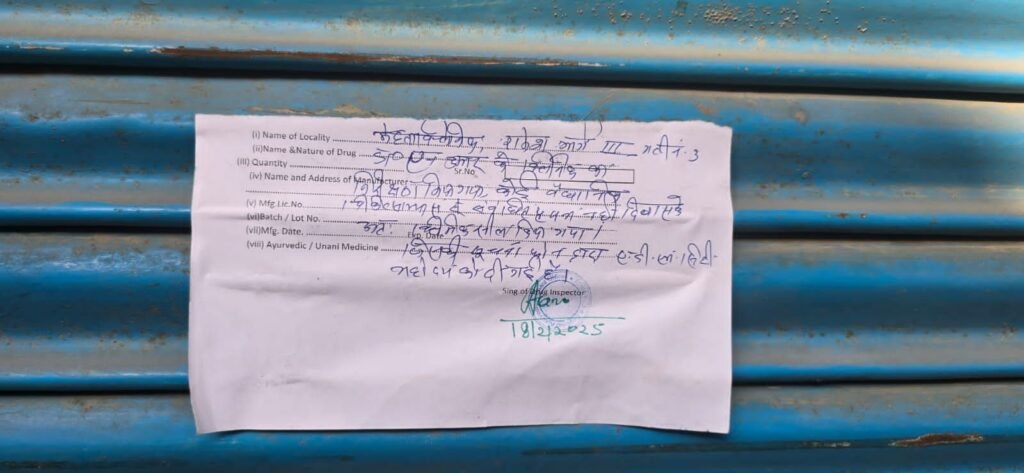 (i) Name of Locality मेहता क्लीनिक, राकेश मार्ग III गली नं. 3
(ii)Name &Nature of Drug डा० के क्लिनिक का
(iii) Quantity Sr.No.
(iv) Name and Address of Manufacturer निरीक्षण किया गया, कोई वैधानिक
(v) Mfg.Lic.No. चिकित्सा से संबंधित नहीं दिखा सके
(vi)Batch / Lot No. अतः क्लीनिक सील किया गया।
(vii)Mfg. Date. Exp. Date
(viii) Ayurvedic / Unani Medicine जिसकी सूचना फोन द्वारा ए.डी.एम. सिटी
महोदय को दी गई है।
Sing of Drug Inspector
18/2/2025